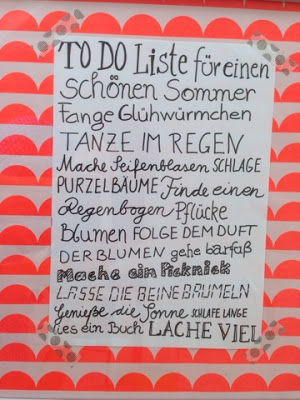 TO DO Liste für einen
schönen Sommer
Fange Glühwürmchen
TANZE IM REGEN
Mache Seifenblasen SCHLAGE
PURZELBÄUME Finde einen
Regenbogen Pflücke
Blumen FOLGE DEM DUFT
DER BLUMEN gehe barfaß
Mache ein Picknick
LASSE DIE BEINE BAUMELN
Genieße die Sonne SCHLAFE LANGE
lies ein Buch LACHE VIEL